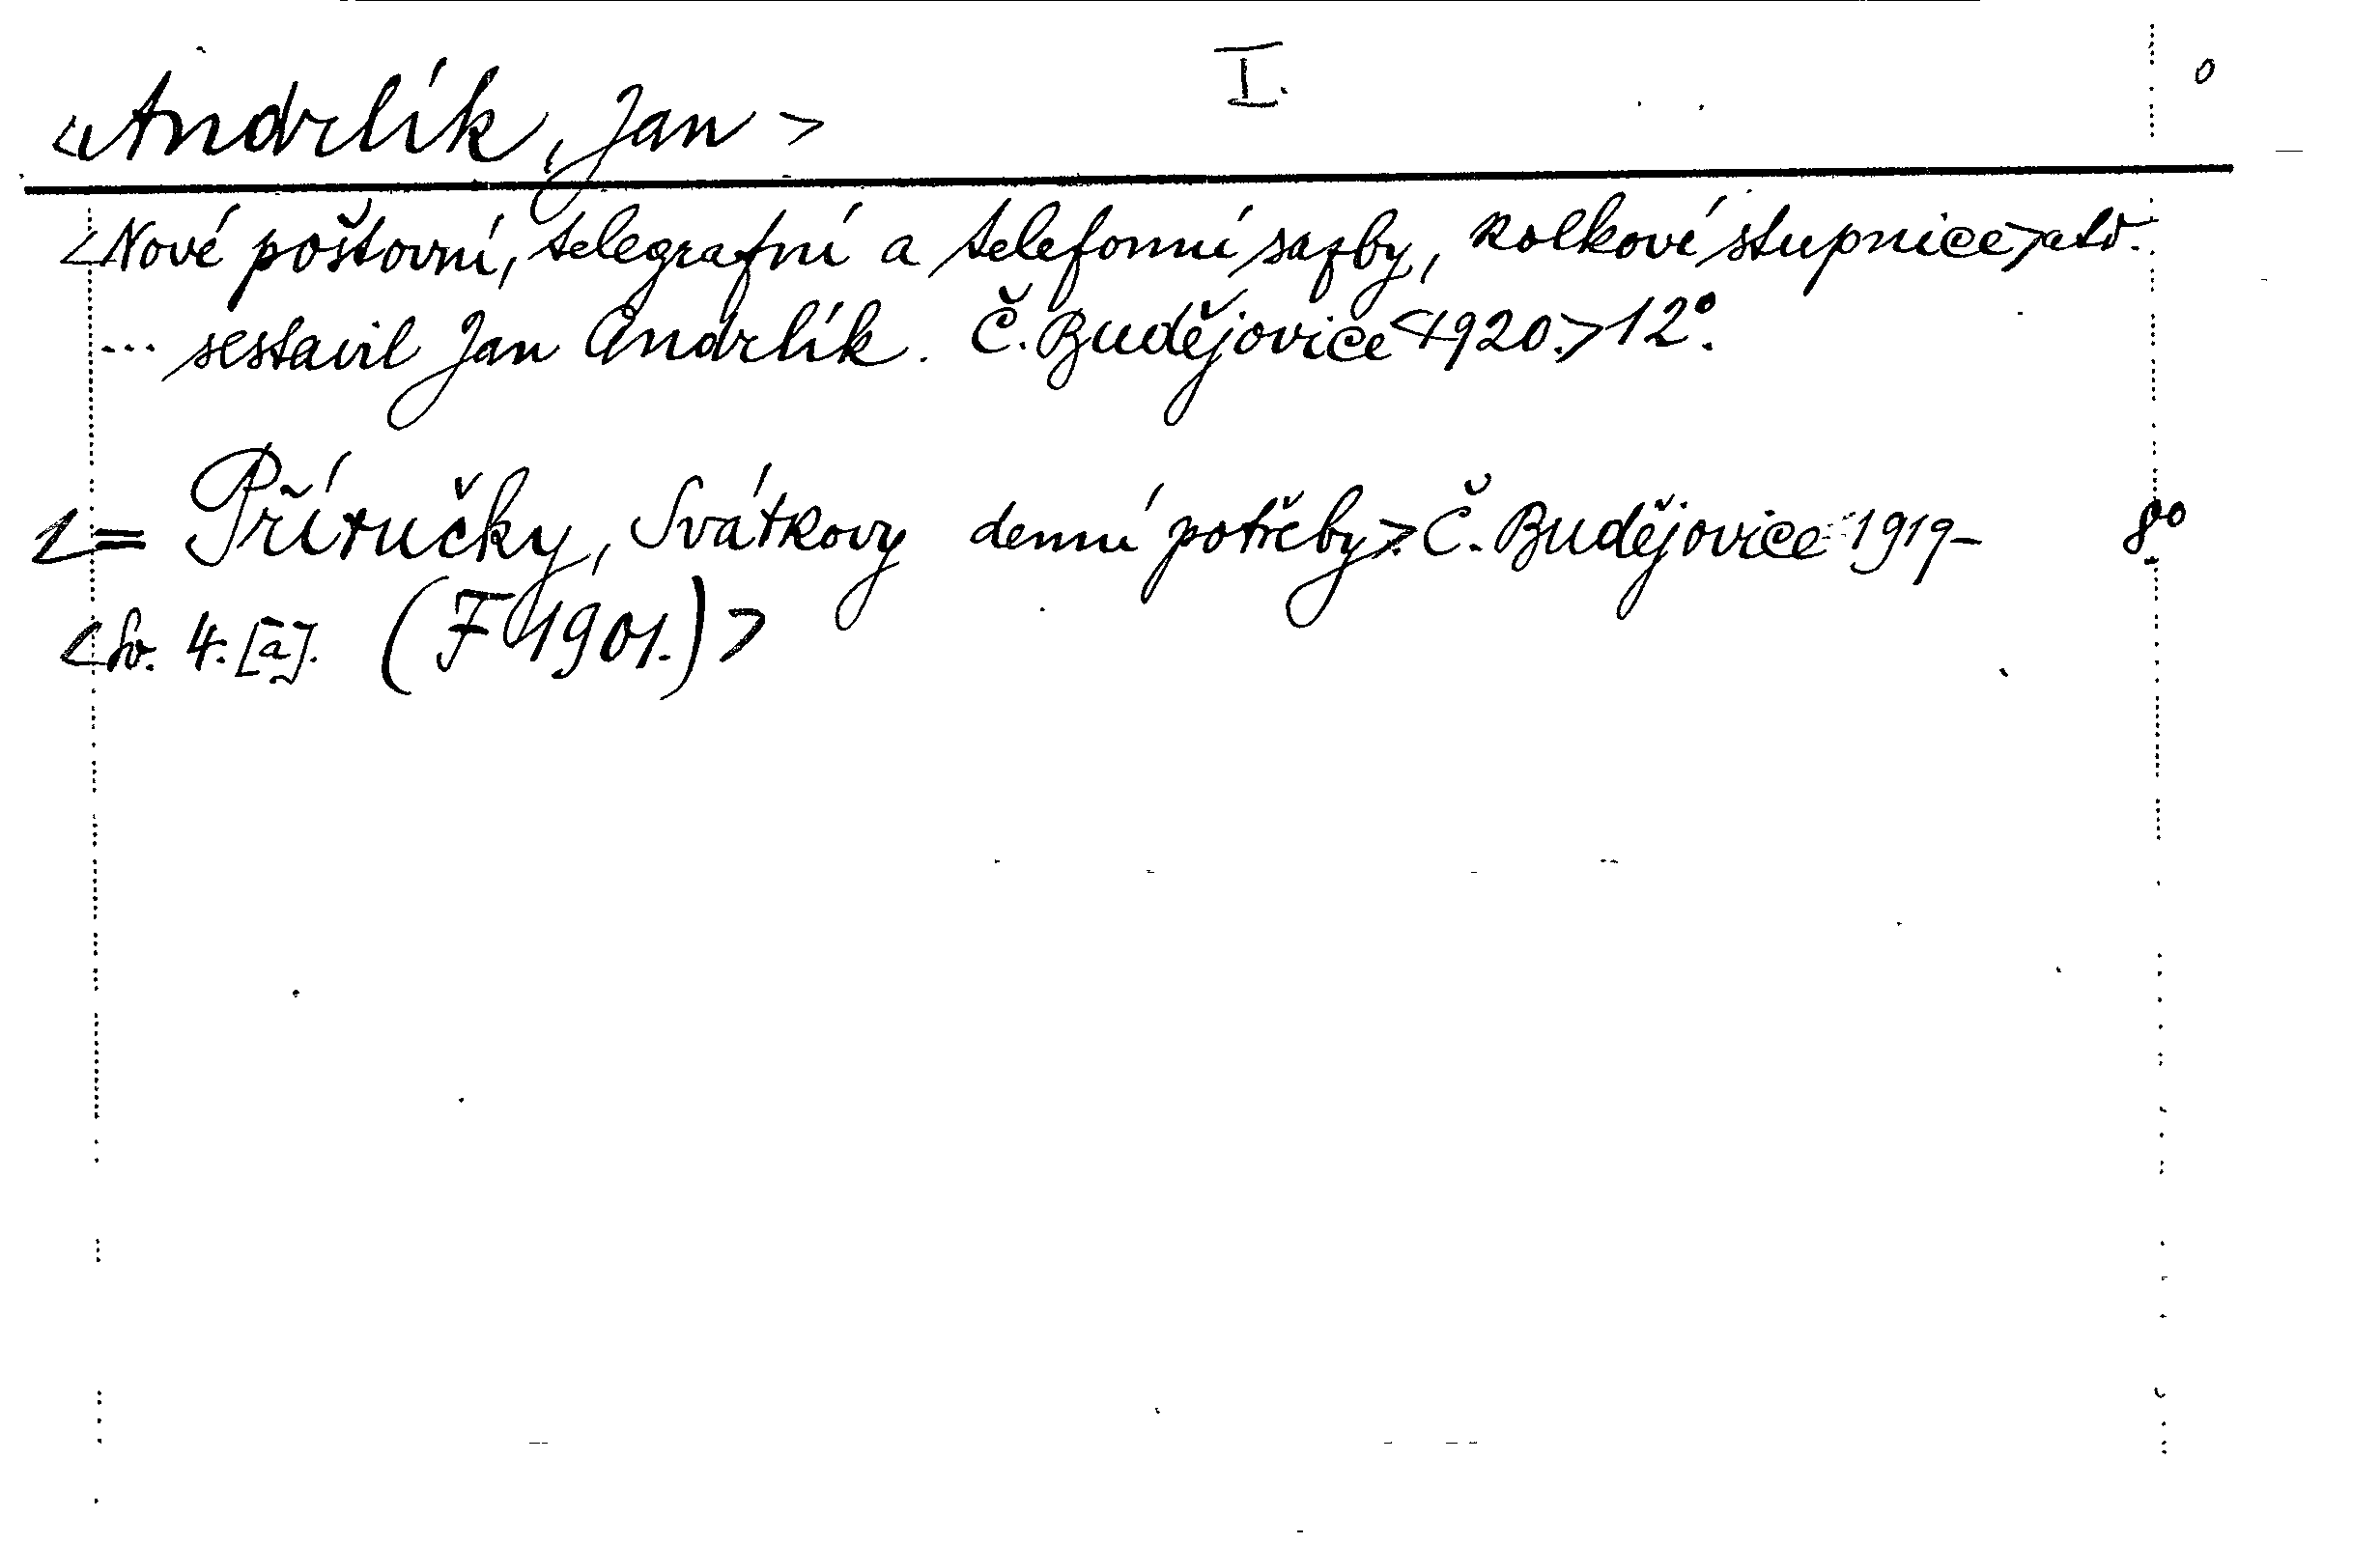 I. 0
<Andrlík, Jan>
<Nové poštovní, telegrafní a telefonní sazby, kolkové stupnice> atd.
... sestavil Jan Andrlík. Č. Budějovice <1920.> 12°.
1= Příručky, Svátkovy denní potřeby>. Č. Budějovice 1919- 8°
<Sv. 4. [a]. (F 1901.)>